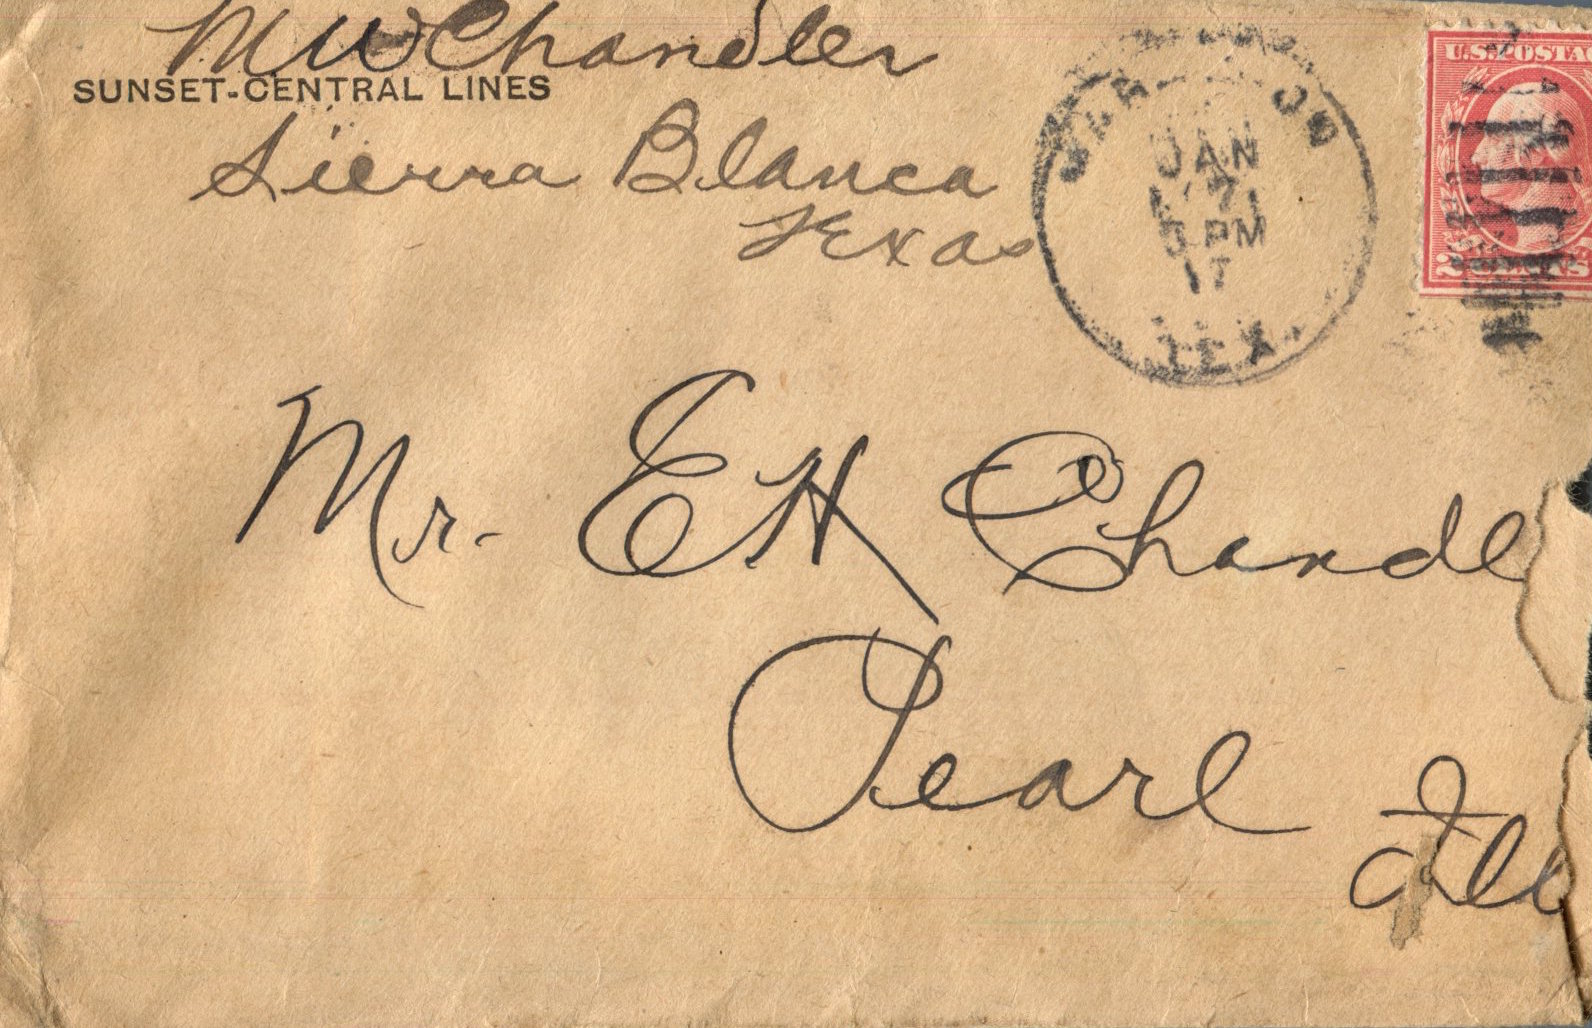 M W Chandler
SUNSET-CENTRAL LINES
Sierra Blanca
Texas
JAN
7
PM
17
TEX.
U.S. POSTA
2 CENTS
Mr. E H Chandl
Pearl
Ill